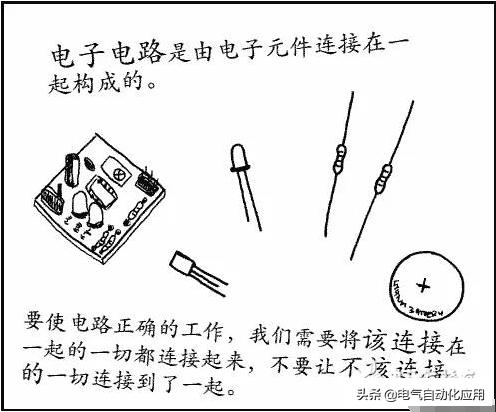 电子电路是由电子元件连接在一
起构成的。
要使电路正确的工作，我们需要将该连接在
一起的一切都连接起来，不要让不该连接
的一切连接到了一起。
头条@电气自动化应用